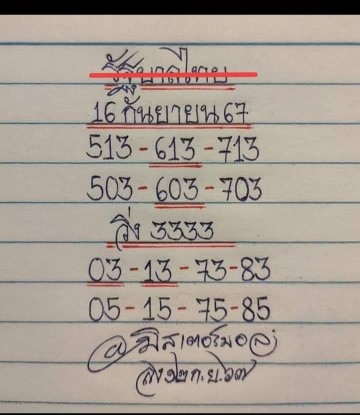 รัฐบาลไทย
16 กันยายน 67
513 - 613 - 713
503 - 603 - 703
วิ่ง 3333
03 - 13 - 73 - 83
05 - 15 - 75 - 85
@มิสเตอร์มอส
๑๒ ก.ย. ๖๗